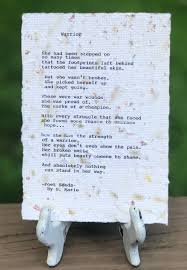 Warrior
She had been stepped on
so many times
that the footprints left behind
tattooed her beautiful skin.
But she wasn't broken,
she picked herself up
and kept going.
These were war wounds
she was proud of.
The scars of ambition.
With every struggle that she faced
she found more reason to
hope...
Now she has the strength
of a warrior,
Her eyes don't even show the pain.
Her broken
still puts beauty queens to shame.
And absolutely nothing
can stand in her way.
-Poet
By S. Marie